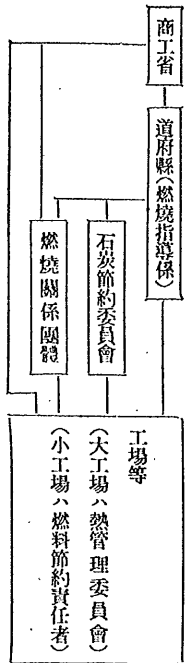 商工省
道府縣(燃燒指導係)
石炭節約委員會
燃燒關係團體
工場等
(大工場ハ熱管理委員會)
(小工場ハ燃料節約責任者)